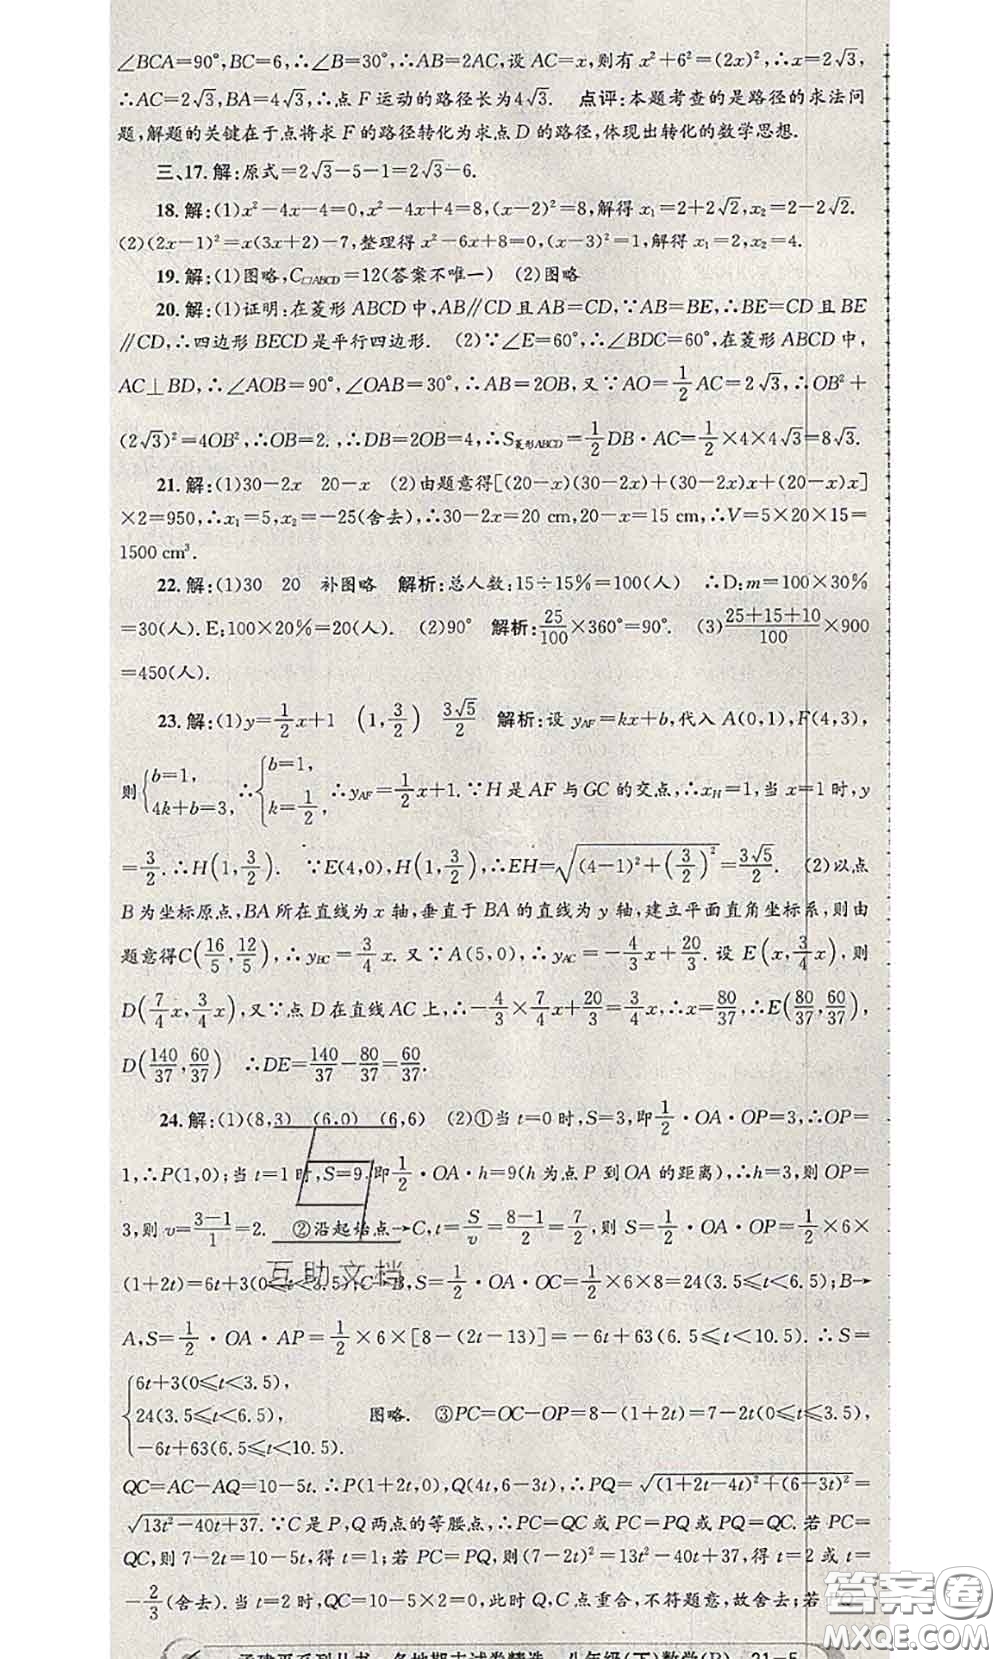 ∠BCA=90°,BC=6,∴∠B=30°,∴AB=2AC,设AC=x,则有x²+6²=(2x)²,∴x=2√3,
∴AC=2√3,BA=4√3,∴点F运动的路径长为4√3. 点评:本题考查的是路径的求法问
题,解题的关键在于点将求F的路径转化为求点D的路径,体现出转化的数学思想.
三、17.解:原式=2√3-5-1=2√3-6.
18.解:(1)x²-4x-4=0,x²-4x+4=8,(x-2)²=8,解得x₁=2+2√2,x₂=2-2√2.
(2)(2x-1)²=x(3x+2)-7,整理得x²-6x+8=0,(x-3)²=1,解得x₁=2,x₂=4.
19.解:(1)图略,C▱ABCD=12(答案不唯一) (2)图略
20.解:(1)证明:在菱形ABCD中,AB∥CD且AB=CD,∵AB=BE,∴BE=CD且BE
∥CD,∴四边形BECD是平行四边形. (2)∵∠E=60°,∴∠BDC=60°,在菱形ABCD中,
AC⊥BD,∴∠AOB=90°,∠OAB=30°,∴AB=2OB,又∵AO=1/2AC=2√3,∴OB²+
(2√3)²=4OB²,∴OB=2.,∴DB=2OB=4,∴S菱形ABCD=1/2DB·AC=1/2×4×4√3=8√3.
21.解:(1)30-2x 20-x (2)由题意得[(20-x)(30-2x)+(30-2x)x+(20-x)x]
×2=950,∴x₁=5,x₂=-25(舍去),∴30-2x=20 cm,20-x=15 cm,∴V=5×20×15=
1500 cm³.
22.解:(1)30 20 补图略 解析:总人数:15÷15%=100(人) ∴D:m=100×30%
=30(人).E:100×20%=20(人). (2)90° 解析:25/100×360°=90°. (3)(25+15+10)/100×900
=450(人).
23.解:(1)y=1/2x+1 (1,3/2) 3√5/2 解析:设yAF=kx+b,代入A(0,1),F(4,3),
则{b=1,4k+b=3,∴{b=1,k=1/2,∴yAF=1/2x+1.∵H是AF与GC的交点,∴xH=1,当x=1时,y
=3/2.∴H(1,3/2). ∵E(4,0),H(1,3/2),∴EH=√((4-1)²+(3/2)²)=3√5/2. (2)以点
B为坐标原点,BA所在直线为x轴,垂直于BA的直线为y轴,建立平面直角坐标系,则由
题意得C(16/5,12/5),∴yBC=3/4x.又∵A(5,0),∴yAC=-4/3x+20/3.设E(x,3/4x),则
D(7/4x,3/4x),又∵点D在直线AC上,∴-4/3×7/4x+20/3=3/4x,∴x=80/37,∴E(80/37,60/37),
D(140/37,60/37) ∴DE=140/37-80/37=60/37.
24.解:(1)(8,3) (6,0) (6,6) (2)①当t=0时,S=3,即1/2·OA·OP=3,∴OP=
1,∴P(1,0);当t=1时,S=9.即1/2·OA·h=9(h为点P到OA的距离),∴h=3,则OP=
3,则v=(3-1)/1=2. ②沿起始点→C,t=S/v=(8-1)/2=7/2,则S=1/2·OA·OP=1/2×6×
(1+2t)=6t+3(0≤t≤3.5);C→B,S=1/2·OA·OC=1/2×6×8=24(3.5≤t≤6.5);B→
A,S=1/2·OA·AP=1/2×6×[8-(2t-13)]=-6t+63(6.5≤t<10.5).∴S=
{6t+3(0≤t<3.5),
24(3.5≤t<6.5), 图略. ③PC=OC-OP=8-(1+2t)=7-2t(0≤t≤3.5),
-6t+63(6.5≤t<10.5).
QC=AC-AQ=10-5t.∴P(1+2t,0),Q(4t,6-3t),∴PQ=√((1+2t-4t)²+(6-3t)²)=
√(13t²-40t+37).∵C是P,Q两点的等腰点,∴PC=QC或PC=PQ或PQ=QC.若PC=
QC,则7-2t=10-5t,得t=1;若PC=PQ,则(7-2t)²=13t²-40t+37,得t=2或t=
-2/3(舍去).当t=2时,QC=10-5×2=0,此时Q,C点重合,不符题意,故舍去;若
互助文档
答案圈